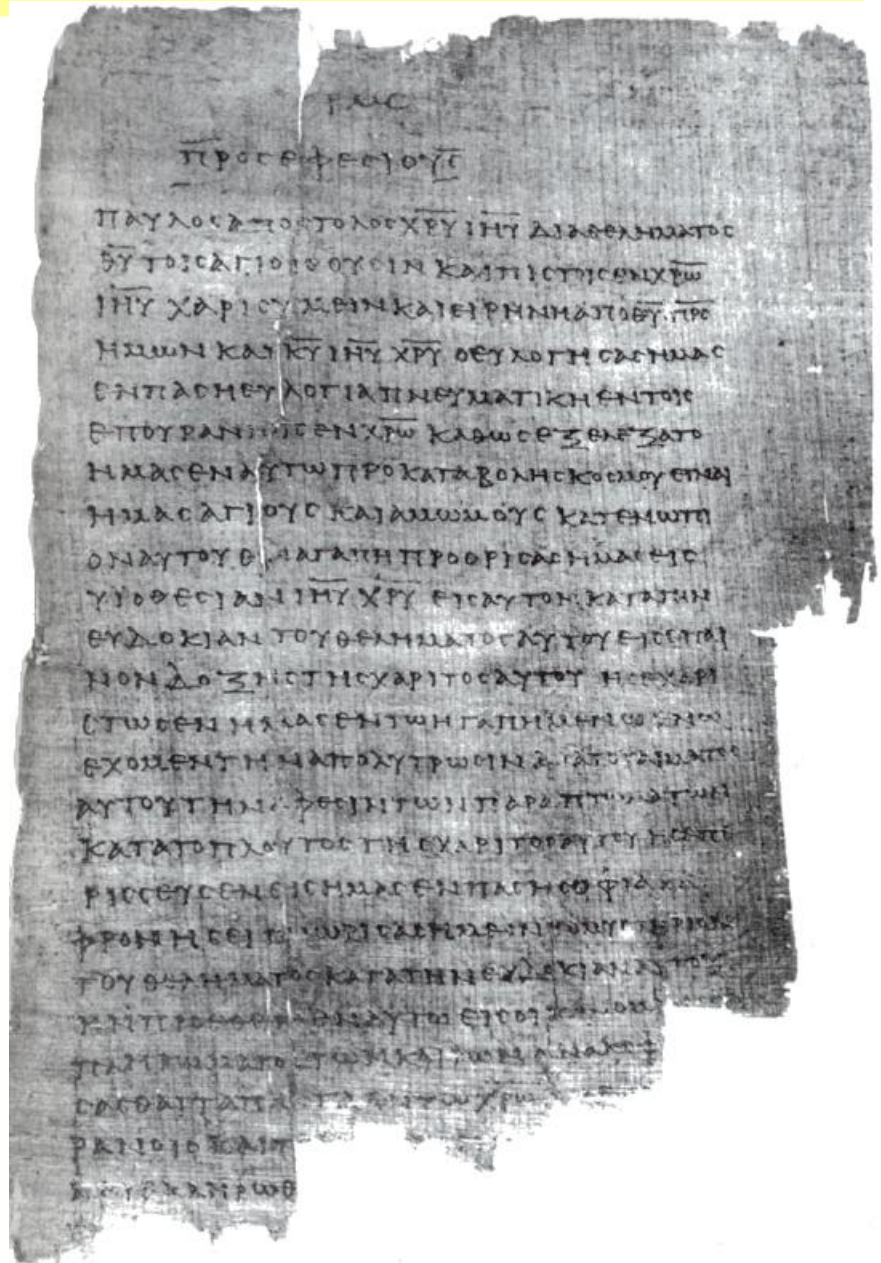 ΡΜϹ
ΠΡΟϹΕΦΕϹΙΟΥϹ
ΠΑΥΛΟϹΑΠΟϹΤΟΛΟϹΧΡΥ ΙΗΥ ΔΙΑΘΕΛΗΜΑΤΟϹ
ΘΥ ΤΟΙϹΑΓΙΟΙϹΟΥϹΙΝ ΚΑΙΠΙϹΤΟΙϹΕΝΧΡΩ
ΙΗΥ ΧΑΡΙϹΥΜΕΙΝΚΑΙΕΙΡΗΝΗΑΠΟΘΥ ΠΡΟ
ΗΜΩΝ ΚΑΙ ΚΥ ΙΗΥ ΧΡΥ ΟΕΥΛΟΓΗϹΑϹΗΜΑϹ
ΕΝΠΑϹΗΕΥΛΟΓΙΑΠΝΕΥΜΑΤΙΚΗΕΝΤΟΙϹ
ΕΠΟΥΡΑΝΙΟΙϹΕΝΧΡΩ ΚΑΘΩϹΕΞΕΛΕΞΑΤΟ
ΗΜΑϹΕΝΑΥΤΩΠΡΟΚΑΤΑΒΟΛΗϹΚΟϹΜΟΥΕΙΝΑΙ
ΗΜΑϹΑΓΙΟΥϹ ΚΑΙΑΜΩΜΟΥϹ ΚΑΤΕΝΩΠΙ
ΟΝΑΥΤΟΥΕΝΑΓΑΠΗΠΡΟΟΡΙϹΑϹΗΜΑϹΕΙϹ
ΥΙΟΘΕϹΙΑΝΙΗΥ ΧΡΥ ΕΙϹΑΥΤΟΝΚΑΤΑΤΗΝ
ΕΥΔΟΚΙΑΝ ΤΟΥΘΕΛΗΜΑΤΟϹΑΥΤΟΥΕΙϹΕΠΑΙ
ΝΟΝΔΟΞΗϹΤΗϹΧΑΡΙΤΟϹΑΥΤΟΥ ΗϹΕΧΑΡΙ
ϹΤΩϹΕΝΗΜΑϹΕΝΤΩΗΓΑΠΗΜΕΝΩΕΝΩ
ΕΧΟΜΕΝΤΗΝΑΠΟΛΥΤΡΩϹΙΝΔΙΑΤΟΥΑΙΜΑΤΟϹ
ΑΥΤΟΥΤΗΝΑΦΕϹΙΝΤΩΝΠΑΡΑΠΤΩΜΑΤΩΝ
ΚΑΤΑΤΟΠΛΟΥΤΟϹΤΗϹΧΑΡΙΤΟϹΑΥΤΟΥΗϹΕΠΕ
ΡΙϹϹΕΥϹΕΝΕΙϹΗΜΑϹΕΝΠΑϹΗϹΟΦΙΑΚΑΙ
ΦΡΟΝΗϹΕΙΓΝΩΡΙϹΑϹΗΜΕΙΝΤΟΜΥϹΤΗΡΙΟΝ
ΤΟΥΘΕΛΗΜΑΤΟϹΚΑΤΑΤΗΝΕΥΔΟΚΙΑΝΑΥΤΟΥ
ΕΝΑΥΤΩΕΙϹΟΙΚΟΝΟΜ
ϹΑϹΘΑΙΤΑΠΑΝΤΑΕΝΤΩΧΡΩ
ΡΑΝΟΙϹΚΑΙΤ